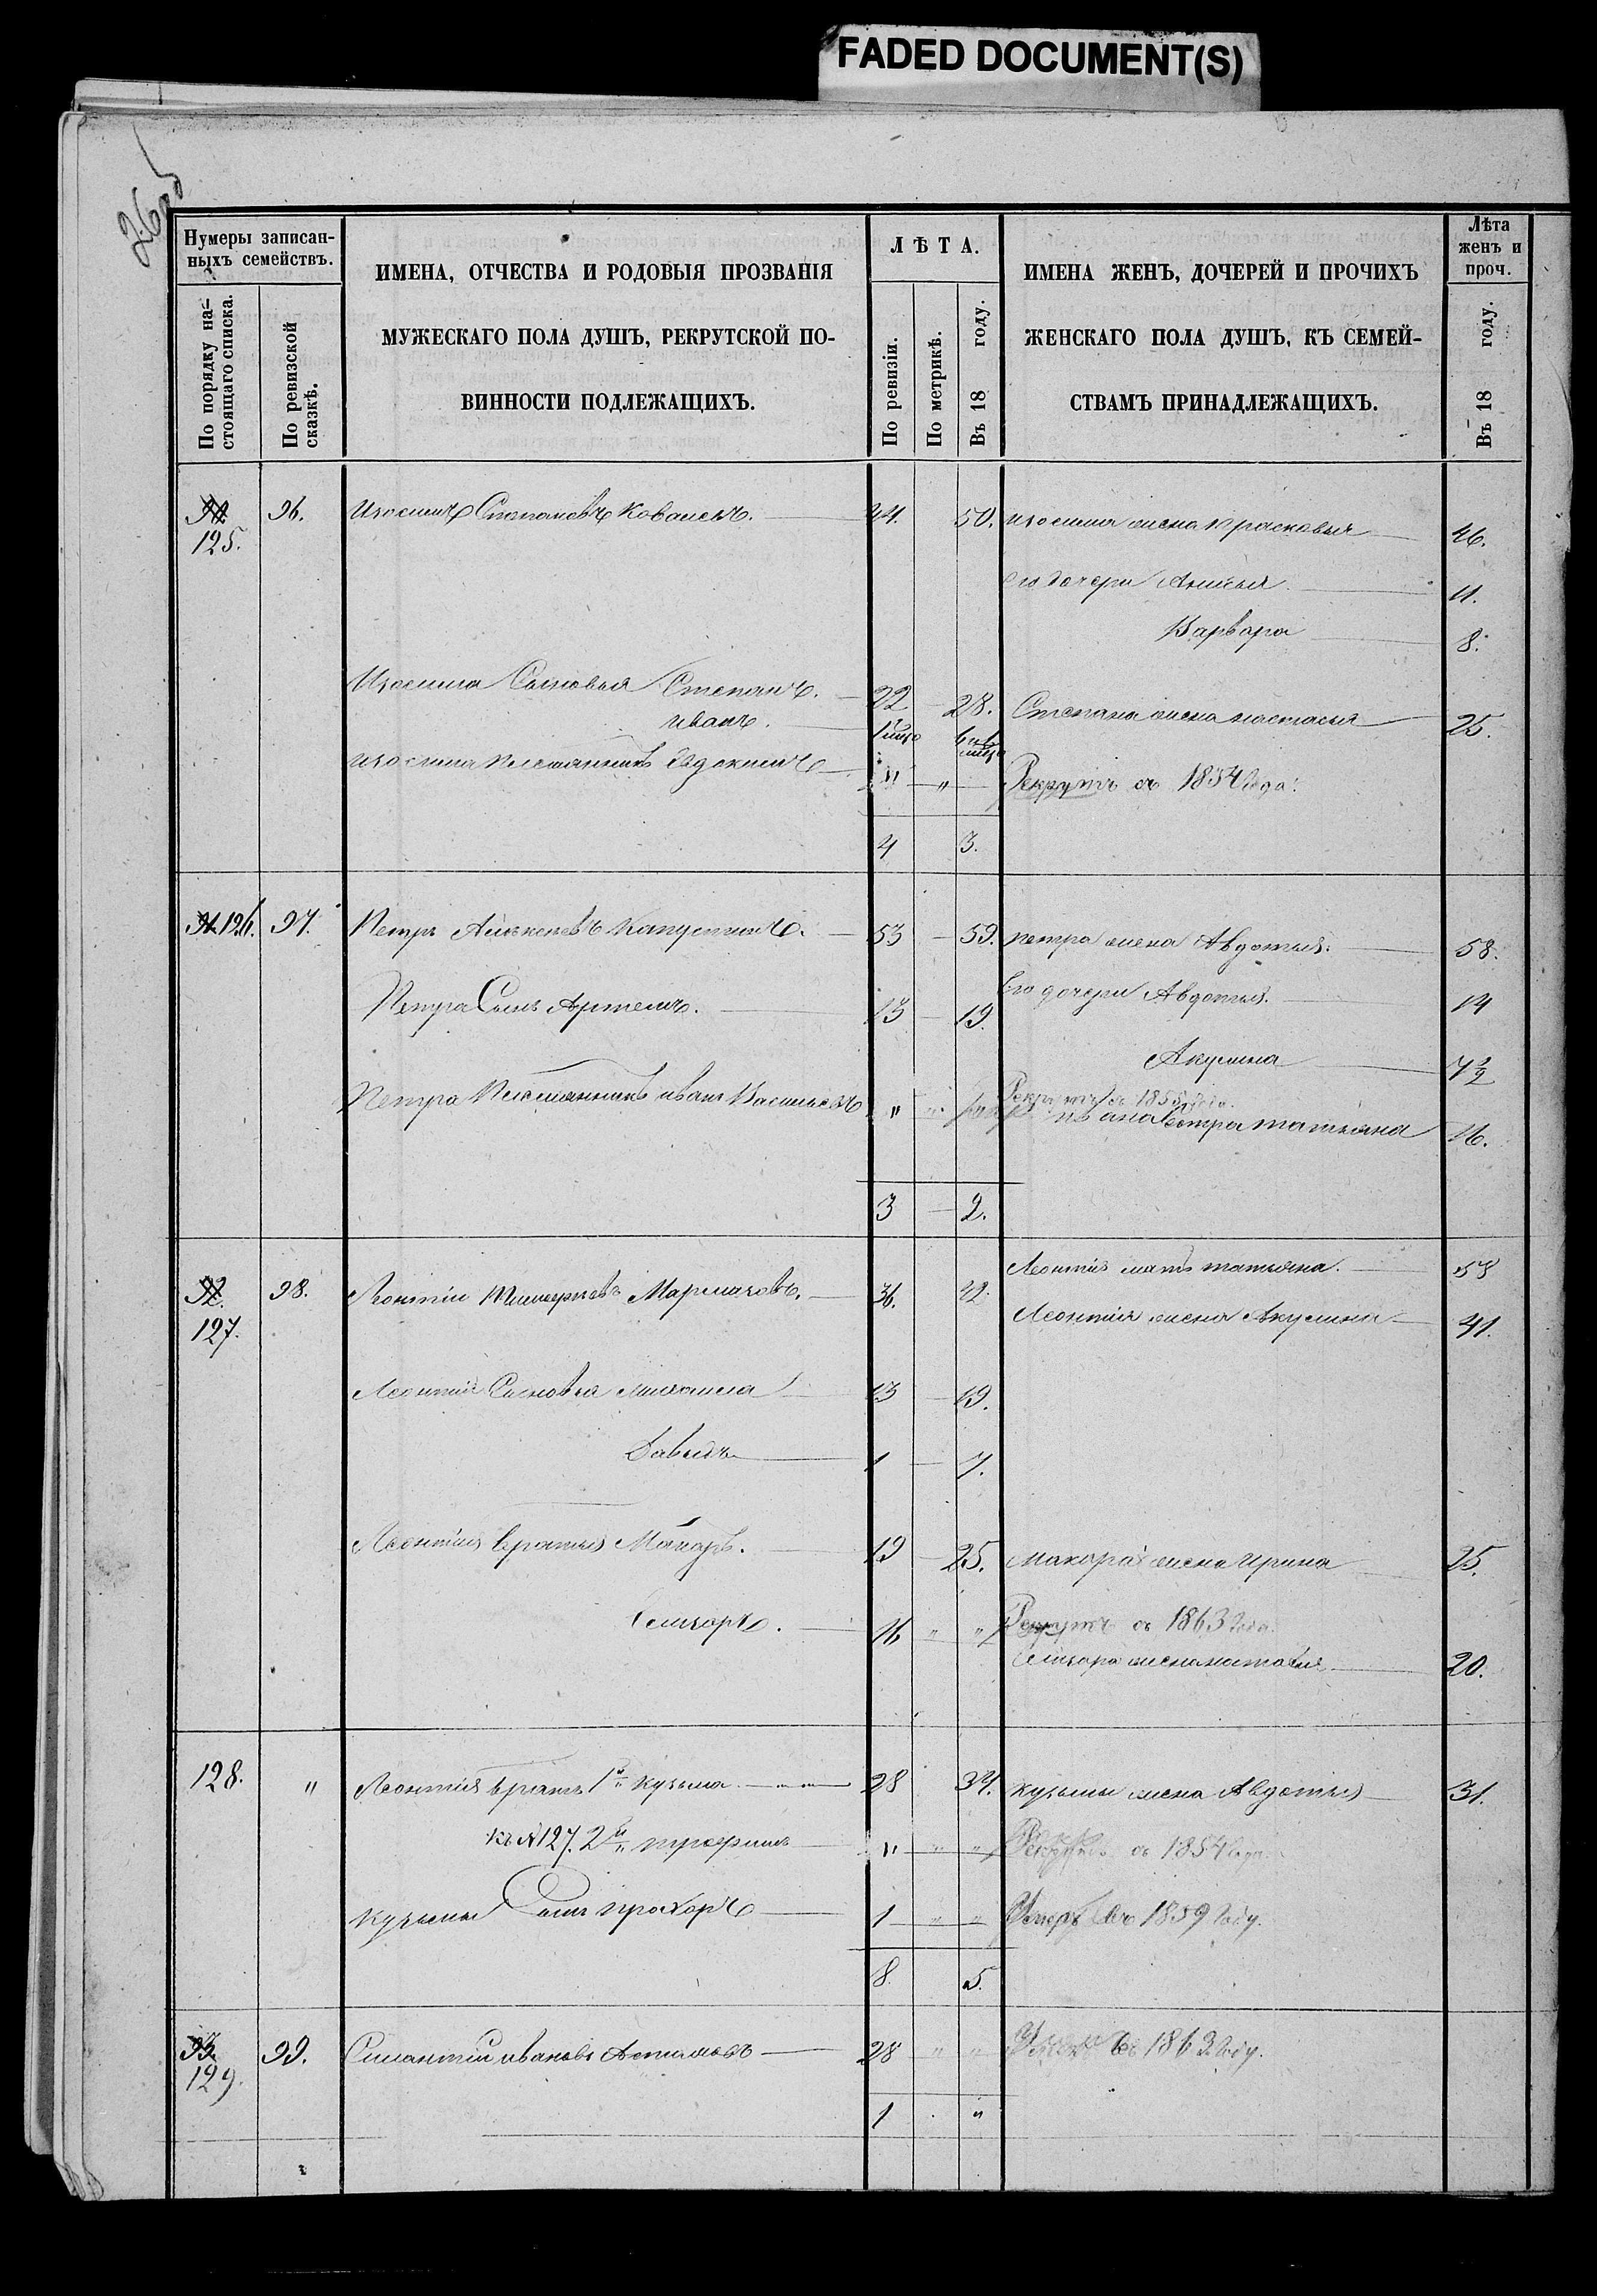 FADED DOCUMENT(S)
Нумеры записан-
ныхъ семействъ.
По порядку на-
стоящаго списка.
По ревизской
сказкѣ.
ИМЕНА, ОТЧЕСТВА И РОДОВЫЯ ПРОЗВАНІЯ
МУЖЕСКАГО ПОЛА ДУШЪ, РЕКРУТСКОЙ ПО-
ВИННОСТИ ПОДЛЕЖАЩИХЪ.
ЛѢТА.
По ревизіи.
По метрикѣ.
Въ 18 году.
ИМЕНА ЖЕНЪ, ДОЧЕРЕЙ И ПРОЧИХЪ
ЖЕНСКАГО ПОЛА ДУШЪ, КЪ СЕМЕЙ-
СТВАМЪ ПРИНАДЛЕЖАЩИХЪ.
Лѣта
женъ и
проч.
Въ 18 году.
96. Изосимъ Степановъ 44. 50. изосима жена прасковья 46.
125.
его дочери Анисья 11.
Варвара 8.
Изосима Сыновья Степанъ. 22 28. Степана жена настасья 25.
иванъ.
изосима племянникъ Евдокимъ " " Рекрутъ съ 1854 Года.
4 3.
126. 97. Петръ Капустинъ. 53 59. петра жена Авдотья. 58.
Петра Сынъ Артемъ. 13 19. Его дочери Авдотья. 14
Акулина 7½
Петра племянникъ иванъ Васильевъ " " Рекрутъ съ 1855 Года.
ивана Сестра татьяна 16.
3 2.
92. 98. Леонтій Марты 36. 42. Леонтія мать татьяна. 58
127. Леонтія жена Акулина 41.
Леонтія Сыновья михаила 13 19.
Давыдъ 1 7.
Леонтія братья Макаръ. 19 25. макара жена Ирина 25.
16 " " Рекрутъ съ 1863 Года.
жена 20.
128. " Леонтія братъ 1й кузьма 28 34. кузьмы жена Авдотья 31.
къ № 127. 2й трофимъ " " " Рекрутъ съ 1854 Года.
кузьмы Сынъ прохоръ 1 " " Умеръ въ 1859 Году.
8. 5.
93. 99. Силантій ивановъ 28 " " Умеръ въ 1863 Году.
129.
1 "